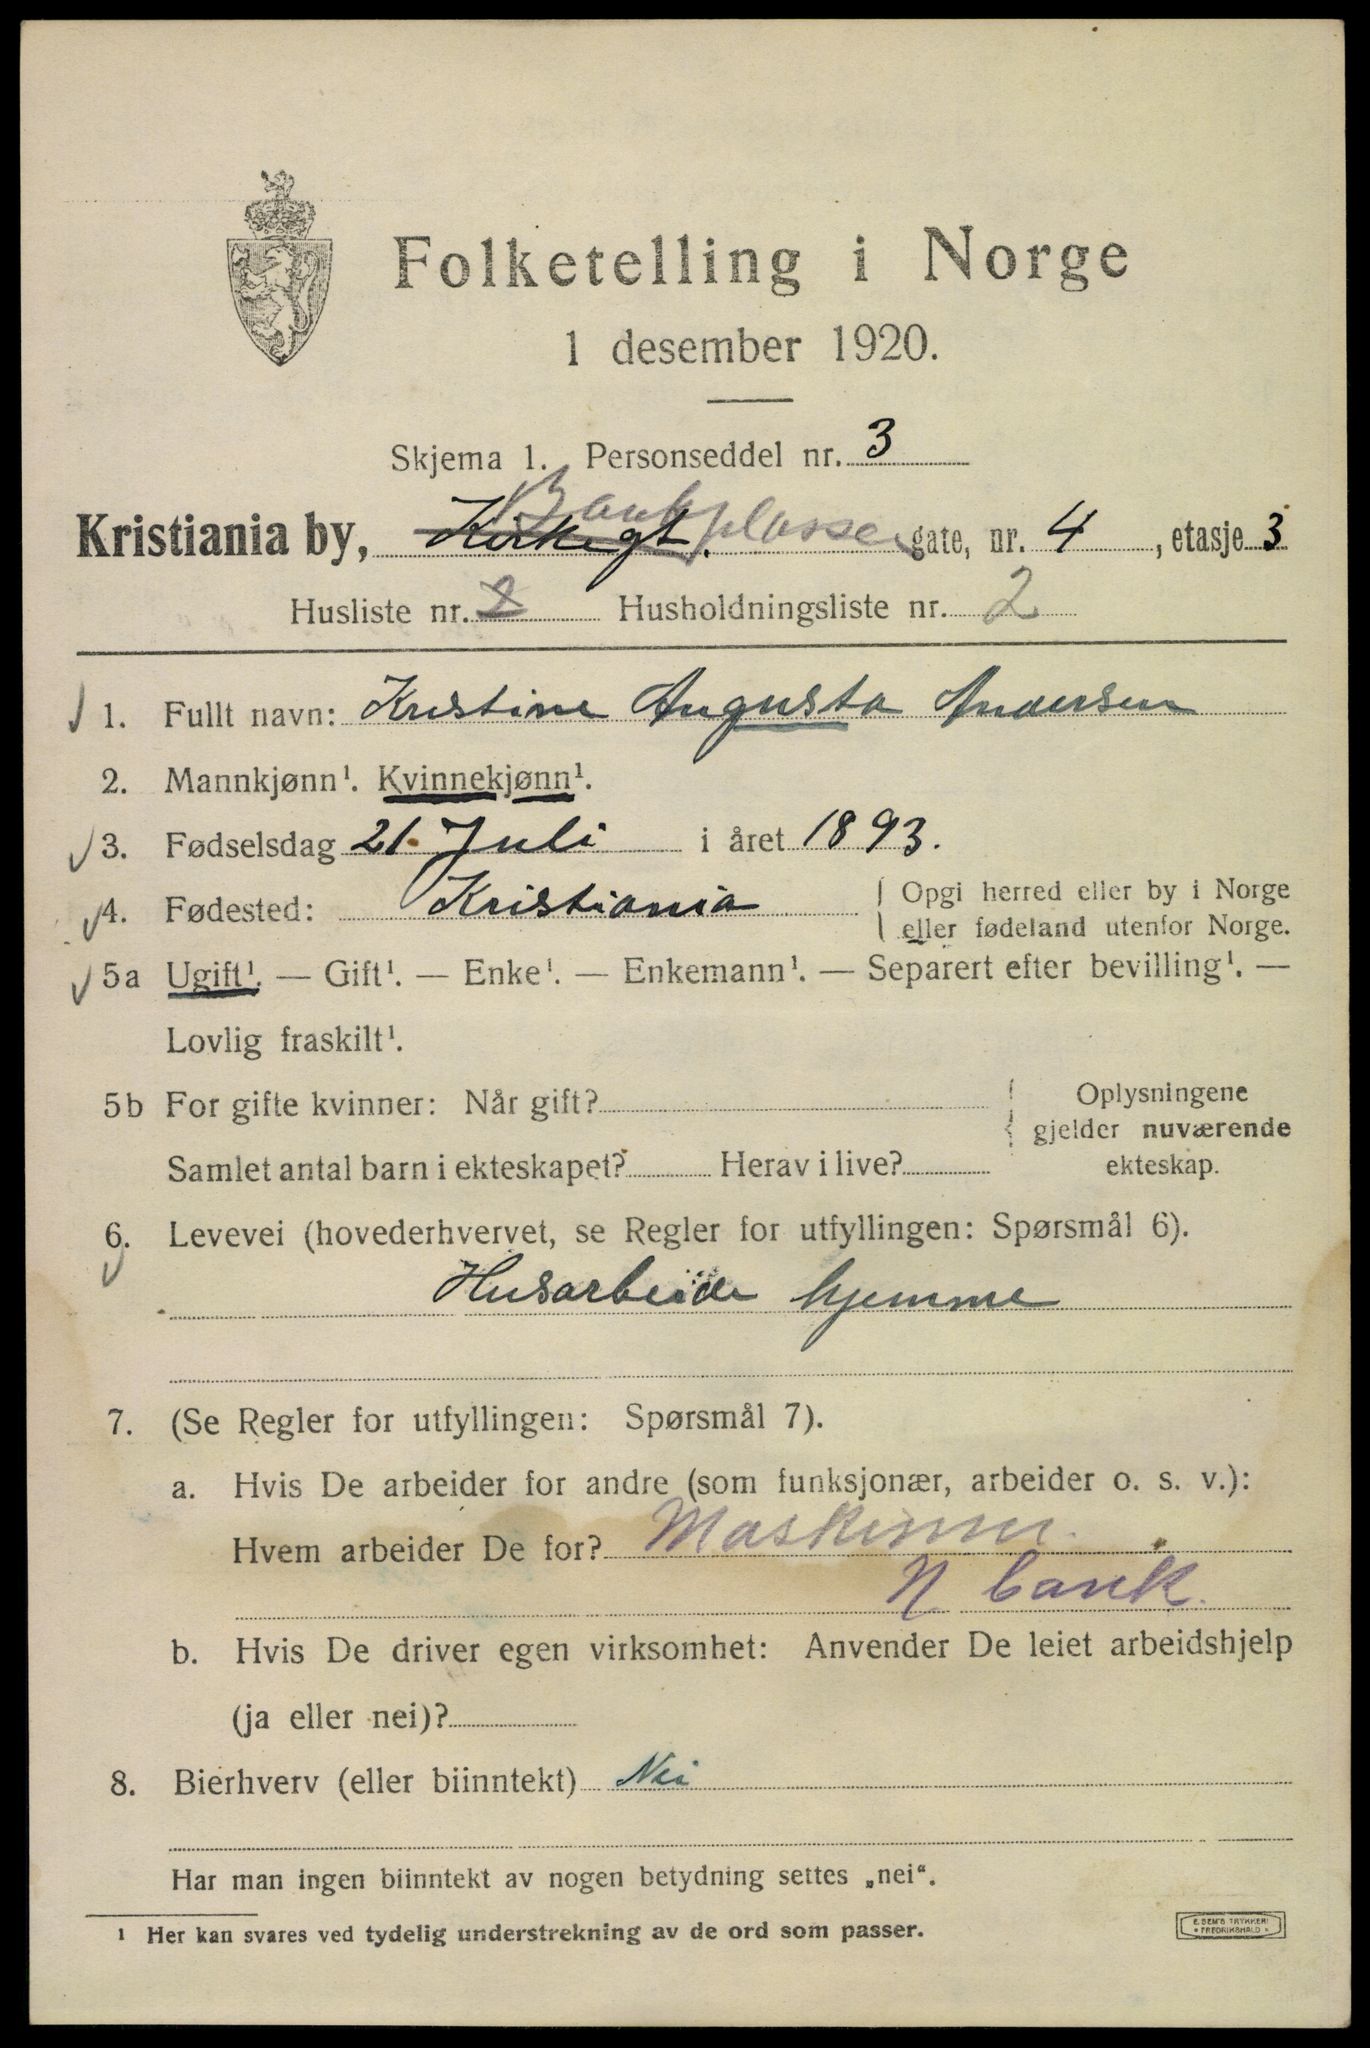 Folketelling i Norge
1 desember 1920.
Skjema 1. Personseddel nr. 3
Bankplassen
Kristiania by, Kirkegt. gate, nr. 4, etasje 3
Husliste nr. 2 Husholdningsliste nr. 2
1. Fullt navn: Kristine Augusta Andersen
2. Mannkjønn¹. Kvinnekjønn¹.
3. Fødselsdag 21. Juli i året 1893.
4. Fødested: Kristiania Opgi herred eller by i Norge
eller fødeland utenfor Norge.
5a Ugift¹. — Gift¹. — Enke¹. — Enkemann¹. — Separert efter bevilling¹. —
Lovlig fraskilt¹.
5b For gifte kvinner: Når gift? Oplysningene
gjelder nuværende
Samlet antal barn i ekteskapet? Herav i live? ekteskap.
6. Levevei (hovederhvervet, se Regler for utfyllingen: Spørsmål 6).
Husarbeide hjemme
7. (Se Regler for utfyllingen: Spørsmål 7).
a. Hvis De arbeider for andre (som funksjonær, arbeider o. s. v.):
Hvem arbeider De for? Maskinm.
N. bank.
b. Hvis De driver egen virksomhet: Anvender De leiet arbeidshjelp
(ja eller nei)?
8. Bierhverv (eller biinntekt) Nei
Har man ingen biinntekt av nogen betydning settes „nei“.
¹ Her kan svares ved tydelig understrekning av de ord som passer.
E. SEM'S TRYKKERI
* FREDRIKSHALD *